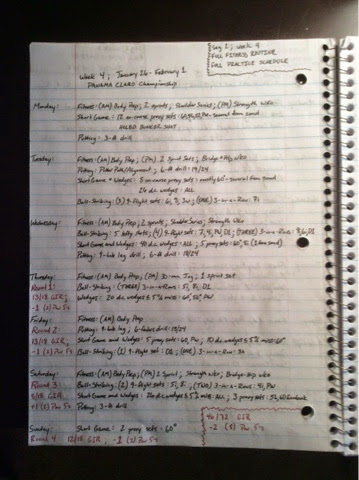 Log 2; week 4
FULL FITNESS ROUTINE
FULL PRACTICE SCHEDULE
Week 4; January 26 - February 1
PANAMA CLARO Championship
Monday: Fitness: (AM) Body Prep; 2 sprints; Shoulder Series; (PM) Strength wko
Short Game: 12 on-course proxy sets:
HILLED BUNKER SHOT
Putting: 3-ft drill
Tuesday: Fitness: (AM) Body Prep; (PM) 2 Sprint Sets; Bridge + Hip wko
Putting: Putter Path/Alignment; 6-ft drill: 19/24
Short Game + Wedges: 5 on course proxy sets: mostly 60°- several from sand
26 dc wedges: ALL
Ball-Striking: (3) 9-flight sets: 6i, 7i, 3w; (ONE) 3-in-a-Row: 7i
Wednesday: Fitness: (AM) Body Prep, 2 sprints, Shoulder Series, Strength wko
Ball-Striking: 5 lofty shots; (4) 9-flight sets: (THREE) 3-in-a-Row:
Short Game and Wedges: 40 dc wedges: ALL; 5 proxy sets: 60°, 8i (1 from sand)
Putting: 9-hole lag; 6-ft drill: 18/24
Thursday: Fitness: (AM) Body Prep, (PM) 30-min Jog, 1 sprint set
Round 1: Ball-Striking: (THREE) 3-in-a-Row: 5i, 8i, D1
13/18 GIR, Wedges: 20 dc wedges ≤5% miss: 60°, 52°, PW
-1 (2) Pw 5s
Friday: Fitness: (AM) Body Prep
Round 2: Putting: 9-hole lag, 6-footers drill: 19/24
12/18 GIR, Short Game and Wedges: 5 proxy sets: 60°, PW, 10 dc wedges ≤5% miss: 60°
-1 (3) Pw 5s Ball-Striking: (2) 9-flight set: D1; (ONE) 3-in-a-Row: 3w
Saturday: Fitness: (AM) Body Prep, (PM) 2 Sprint, Strength wko, Bridge-Hip wko
Round 3 Ball-Striking: (2) 9-flight sets: 5i, 8i, (TWO) 3-in-a-Row: 4i, PW
GIR, Short Game and Wedges: 26 dc wedges ≤5% miss: ALL; 3 proxy sets:
Pw 5s Putting: 3-ft drill
Sunday: Short Game: 2 proxy sets - 60°
Round 4 12/18 GIR, -1 (2) Pw 5s
46/72 GIR
-2 (8) Pw 5s